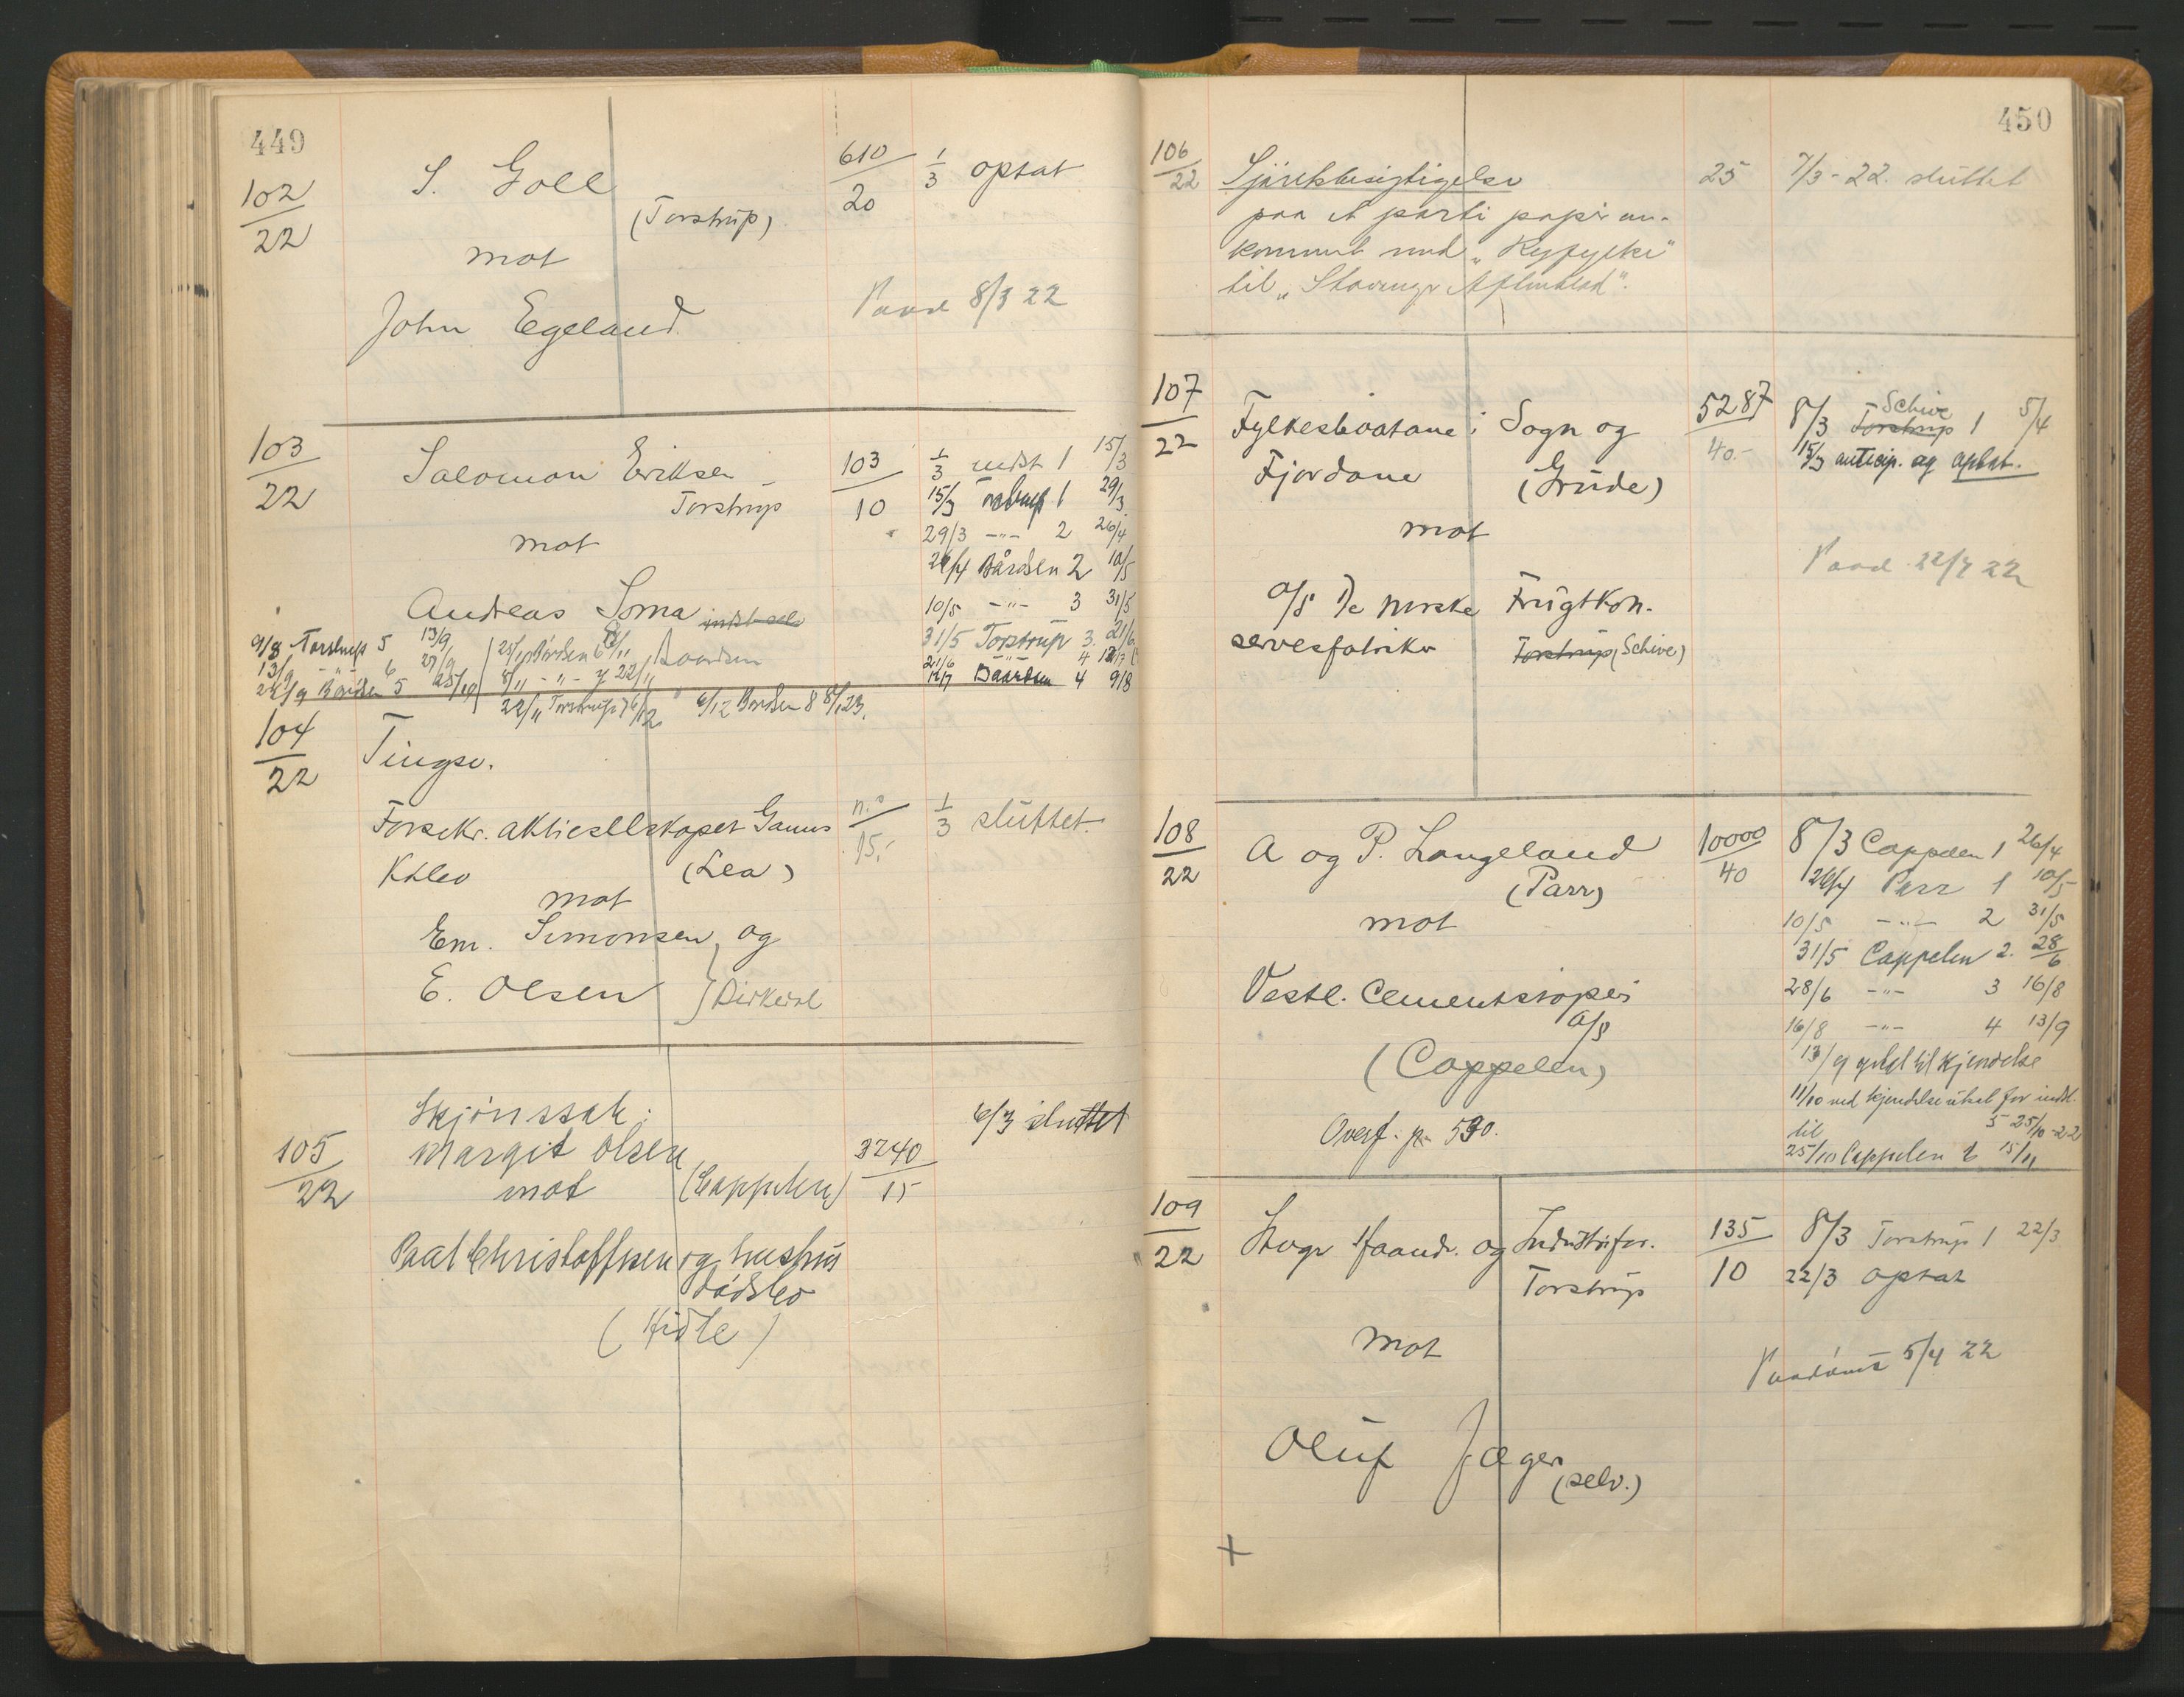 449
102/22
S. Goll
(Torstrup)
mot
John Egeland
610/20
1/3 optat
8/3 22
103/22
Salomon Eriksen
Torstrup
mot
Andreas Soma
103/10
1/3 indst 1 15/3
15/3 Torstrup 1 29/3
29/3 -"- 2 26/4
26/4 Bårdsen 2 10/5
10/5 -"- 3 31/5
31/5 Torstrup 3. 21/6
21/6 -"- 4 12/7
12/7 Baardsen 4 9/8
9/8 Torstrup 5 13/9
13/9 -"- 6 27/9
27/9 Bårdsen 5 25/10
25/10 Bårdsen 6 8/11
8/11 -"- 7 22/11
22/11 Torstrup 7 6/12
6/12 Bårdsen 8 8/1 23.
Baardsen
104/22
Tingsv.
Forsekr. aktieselskapet Gauus
Khlev (Lea)
mot
Em. Simonsen og
E. Olsen
1/3 sluttet.
15,-
105/22
Skjønssak:
Margit Olsen
mot (Cappelen)
Paal Christoffersen og hustrus
dødsbo
(Hidle)
3240/15
6/3 sluttet
450
106/22
Sjørettsbesigtigelse
paa et parti papir an-
kommet med "Ryfylke"
til "Stavanger Aftenblad".
25
7/3 - 22. sluttet
107/22
Fylkesbaatane i Sogn og
Fjordane (Grude)
mot
A/S De norske Frugtkon-
servesfabriker
Torstrup (Schive)
5287/40.-
Schive
8/3 Torstrup 1 5/4
15/3 anticip. og optat.
108/22
A og P. Langeland
(Parr)
mot
Vestl. Cementstøperi
A/S
(Cappelen)
Overf. p. 530.
10000/40
8/3 Cappelen 1 26/4
26/4 Parr 1 10/5
10/5 -"- 2 31/5
31/5 Cappelen 2. 28/6
28/6 -"- 3 16/8
16/8 -"- 4 13/9
13/9 optat til kjendelse
11/10 ved kjendelse utsat for indst.
til 5 25/10-22
25/10 Cappelen 6 15/11
109/22
Stvgr Haandv. og Industrifor.
Torstrup
mot
Oluf Jæger
(selv.)
135/10
8/3 Torstrup 1 22/3
22/3 optat
5/4 22
+